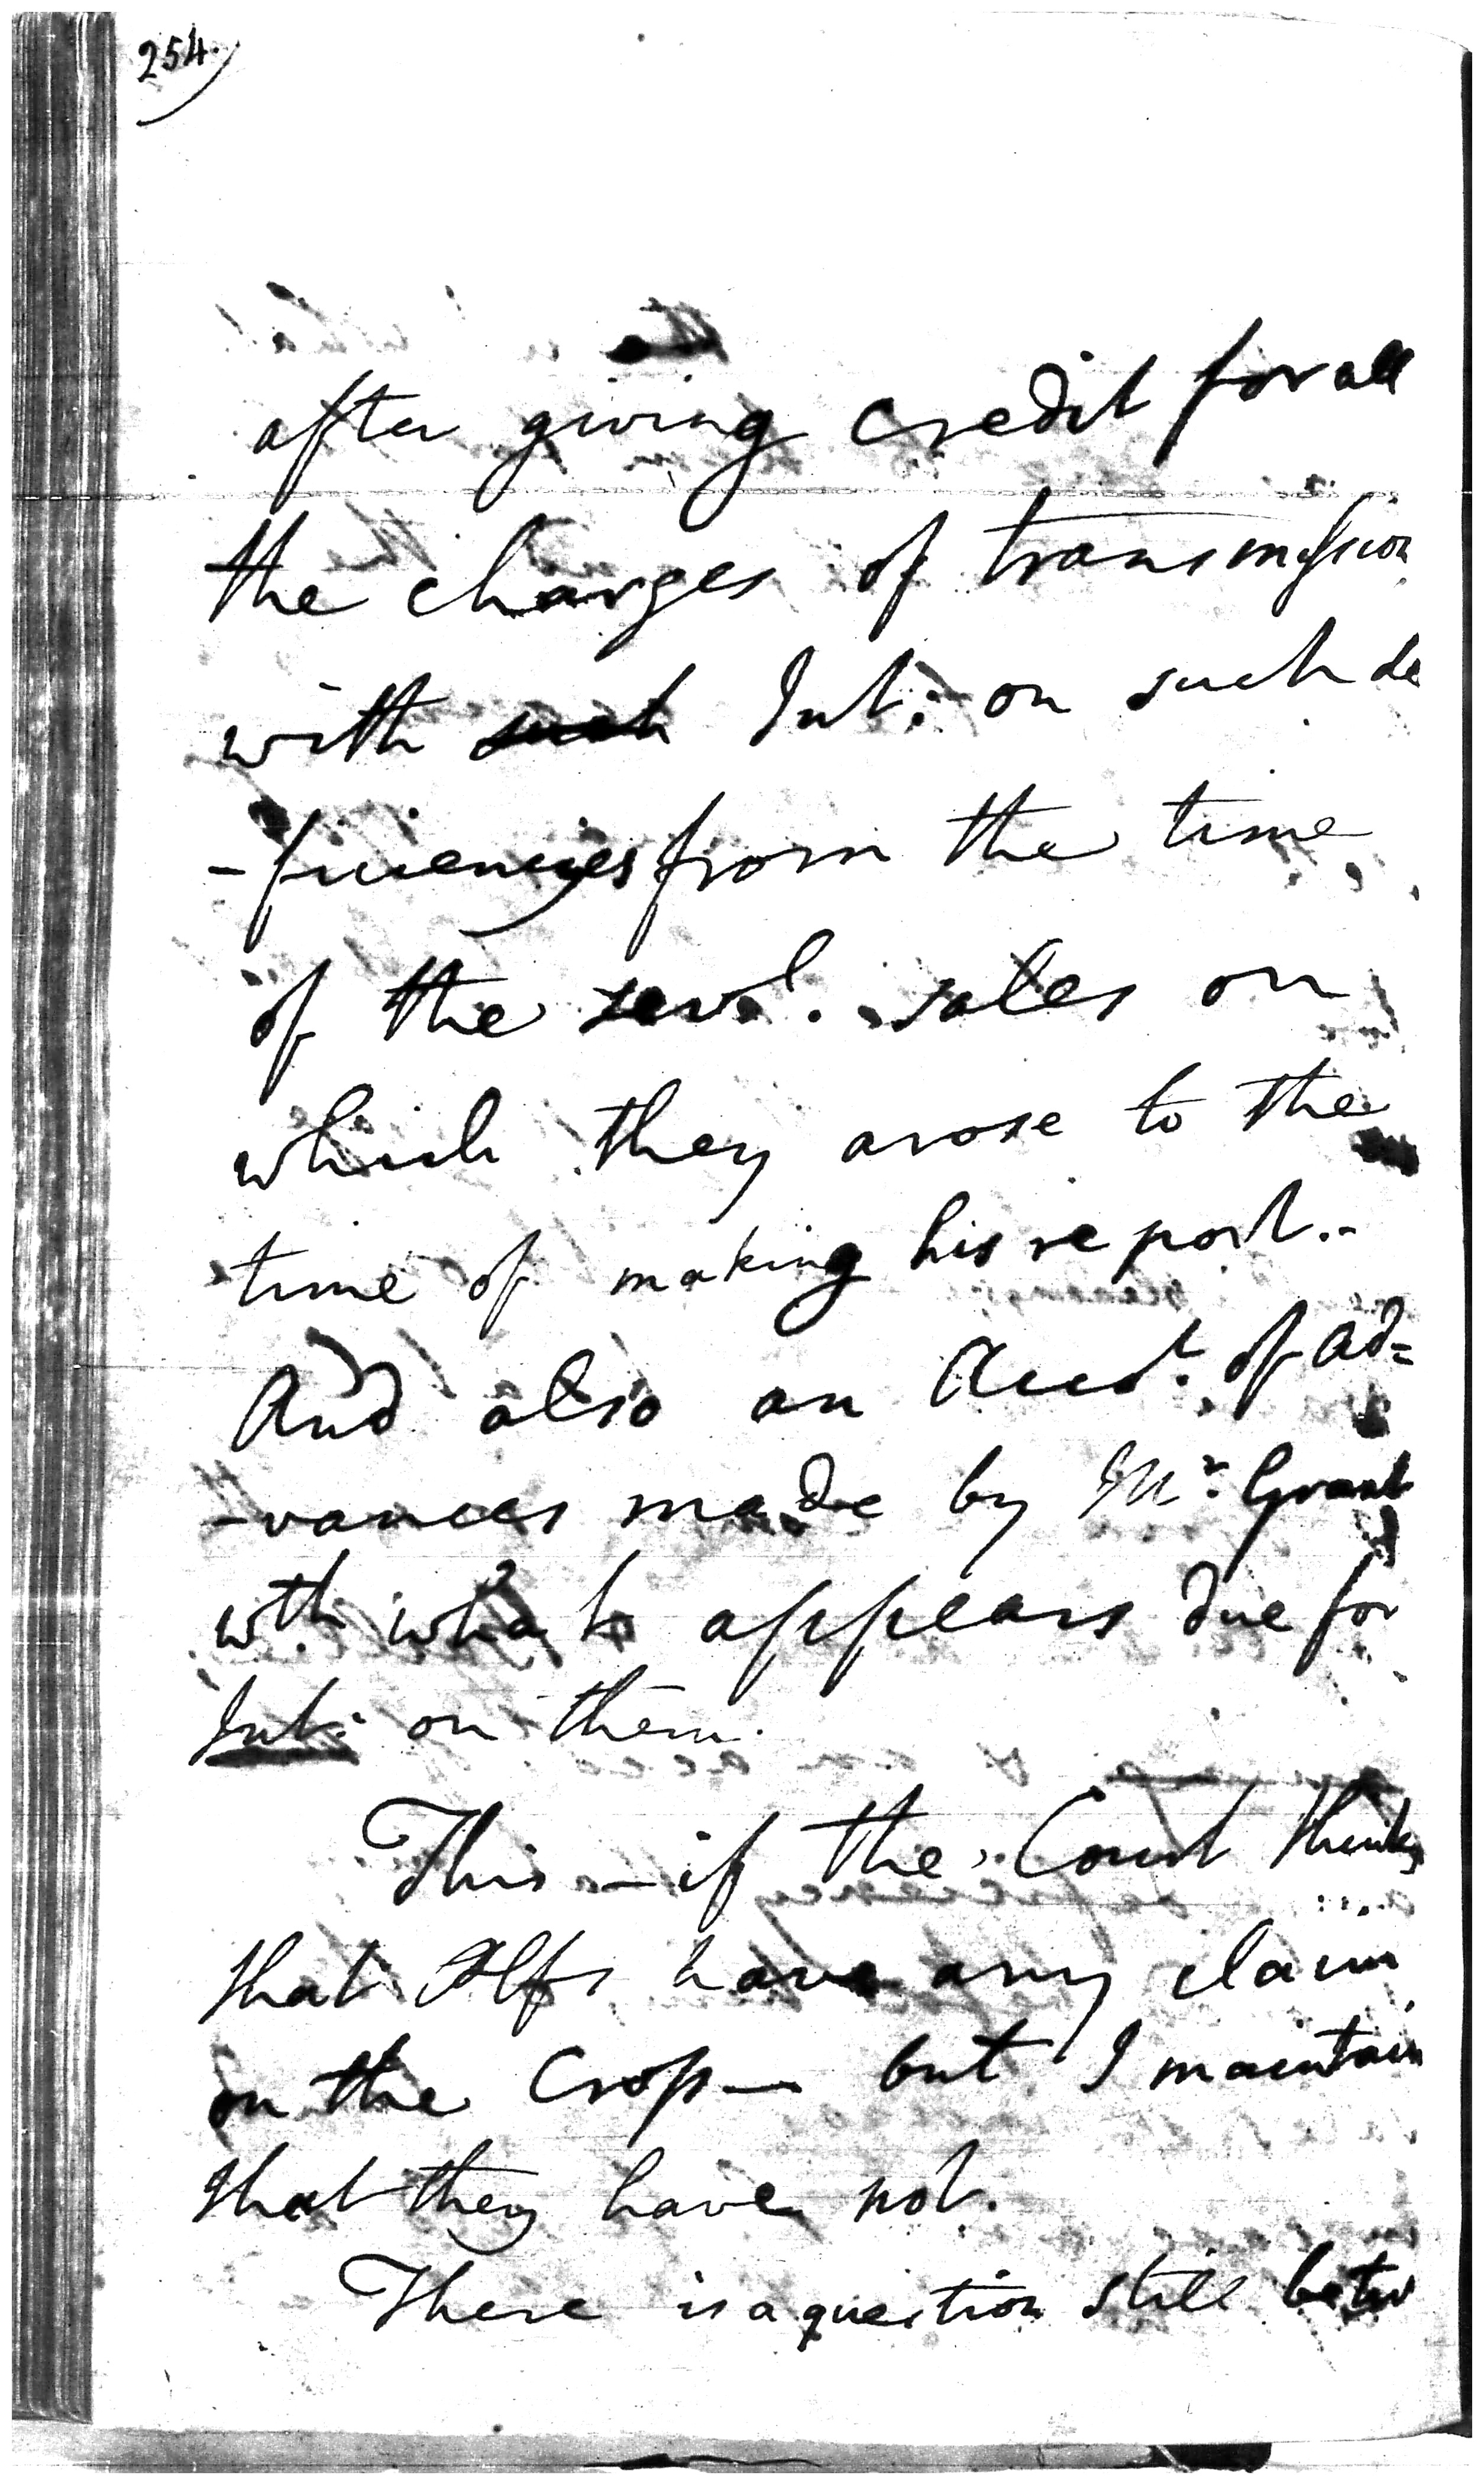 254.
after giving credit for all
the charges of transmission
with such Int: on such de
-ficiencies from the time
of the sevl. sales on
which they arose to the
time of making his report.-
And also an Acct. of ad=
-vances made by Mr. Grant
wth what appears due for
Int: on them.
This - if the Court thinks
that Plfs have any claim
on the Crop - but I maintain
that they have not.
There is a question still betw